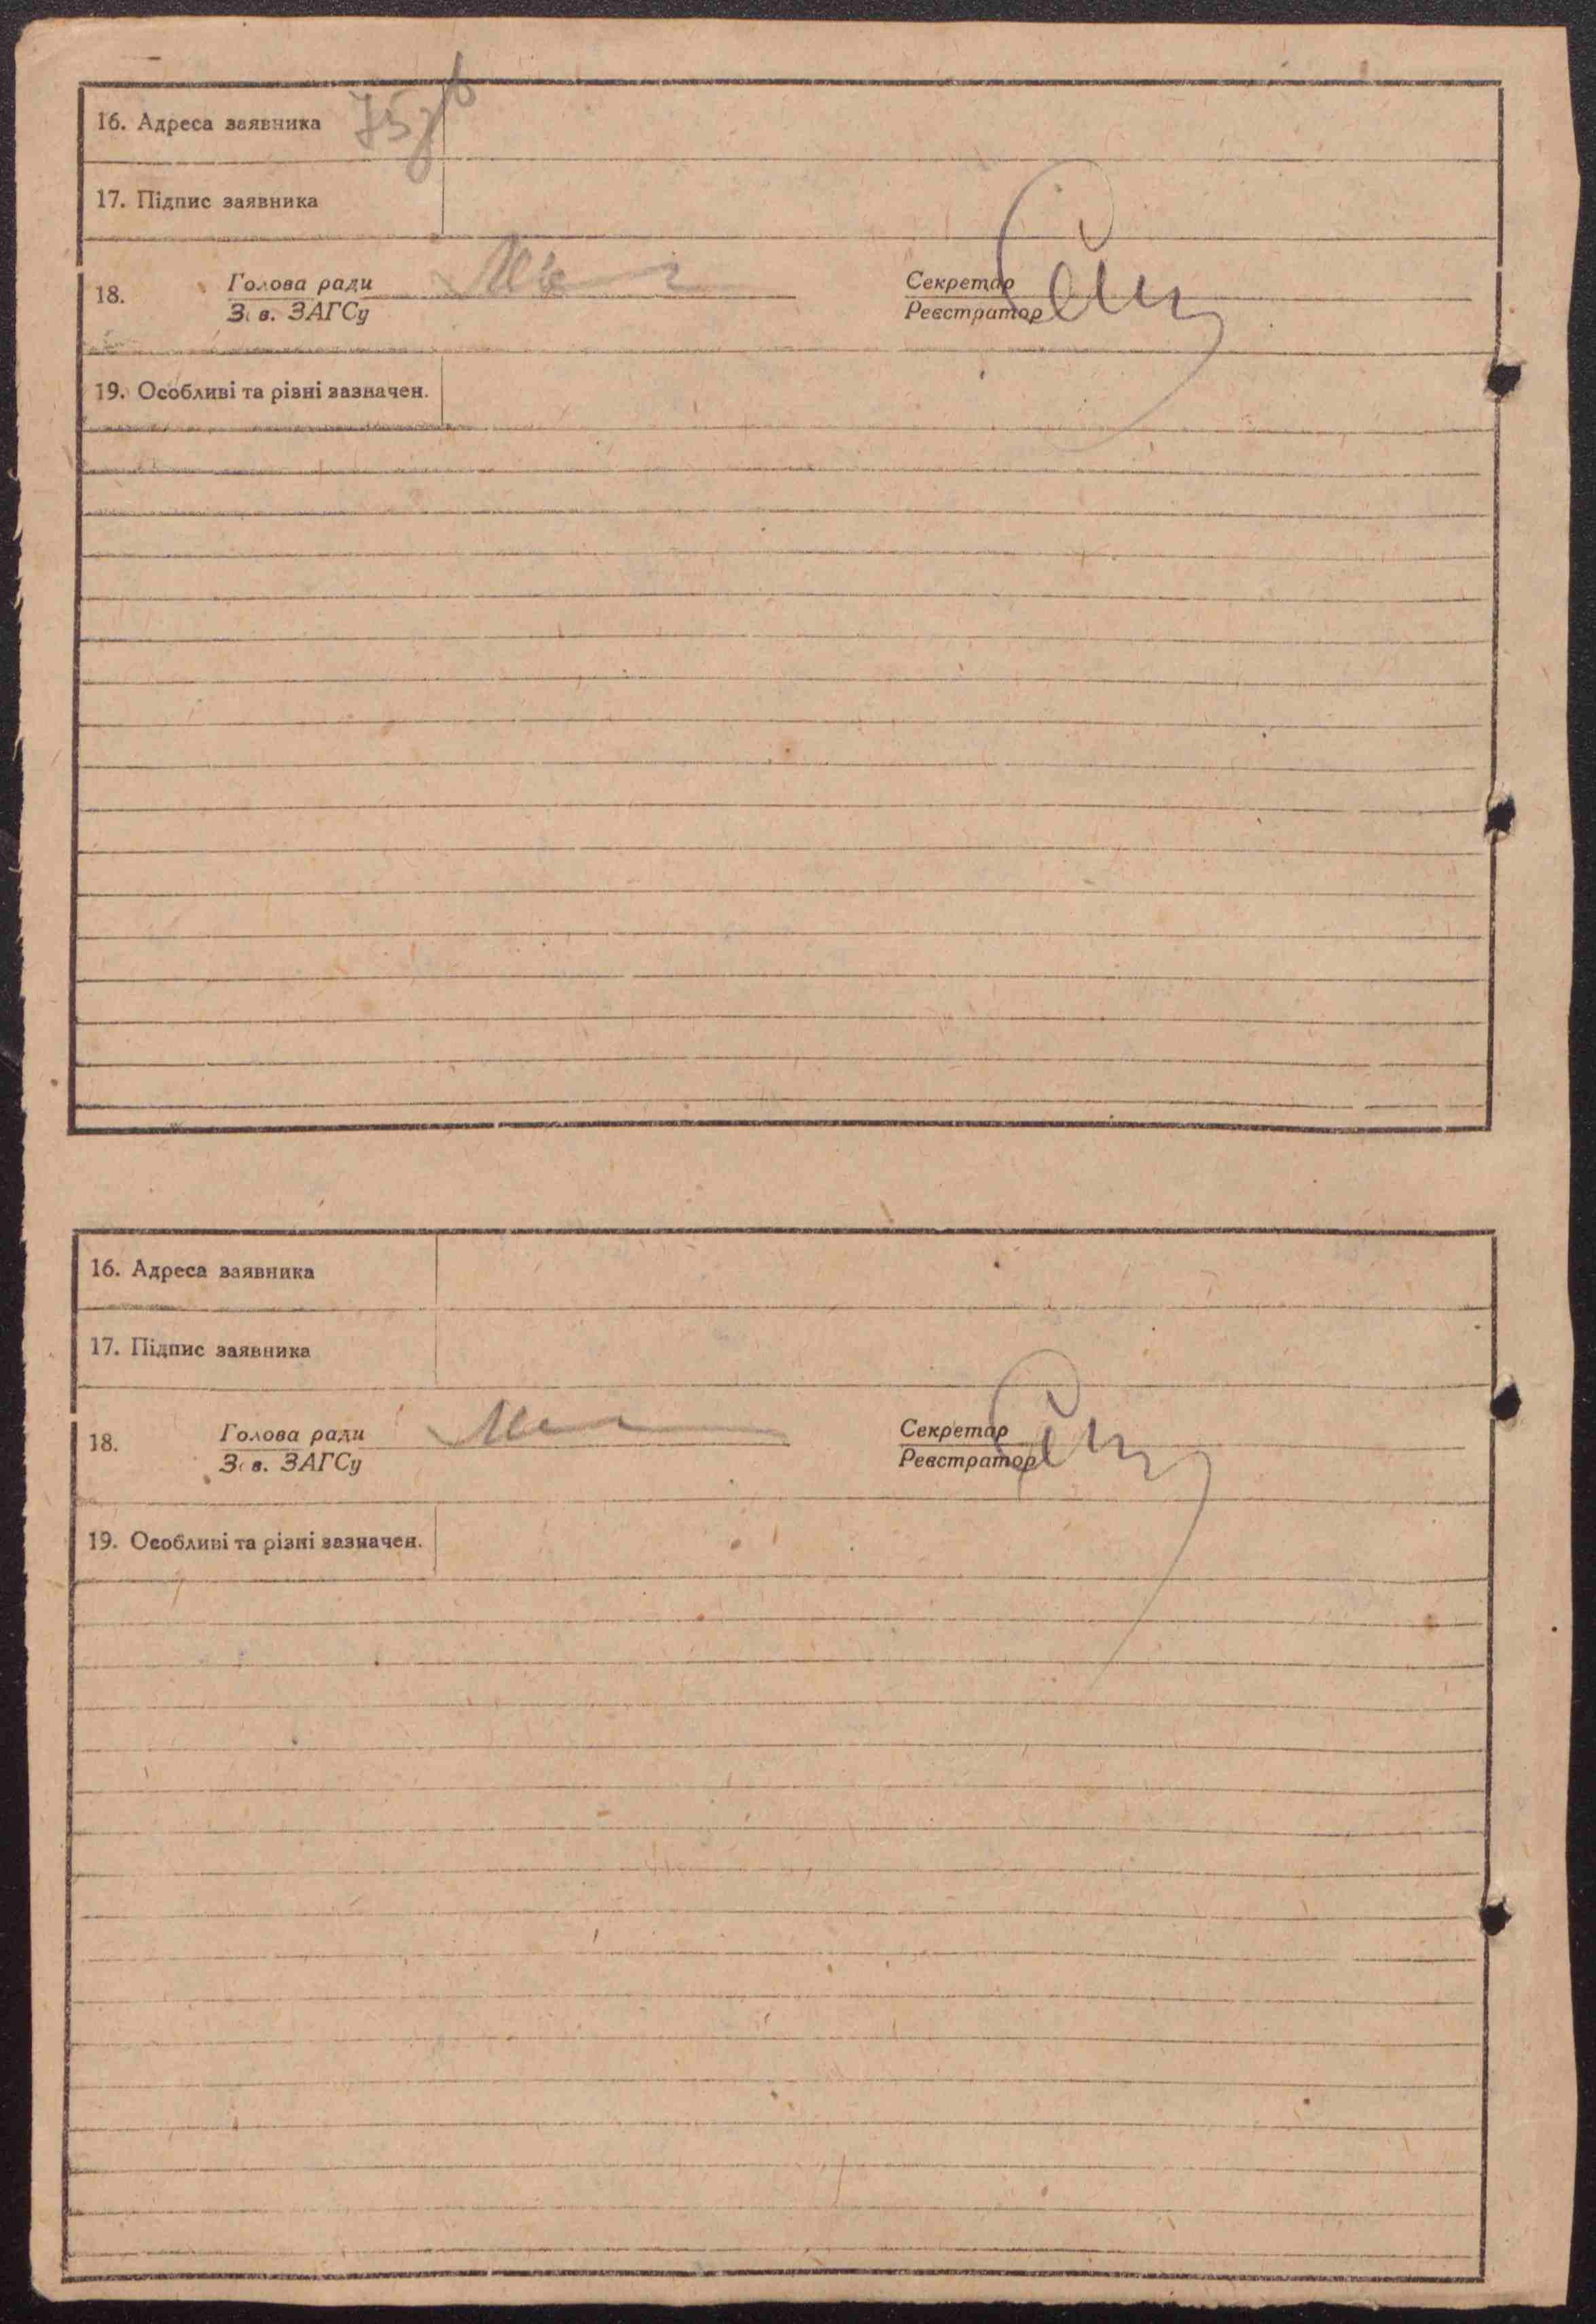 16. Адреса заявника 75зв
17. Підпис заявника
18. Голова ради Секретар
Зав. ЗАГСу Реєстратор
19. Особливі та різні зазначен.
16. Адреса заявника
17. Підпис заявника
18. Голова ради Секретар
Зав. ЗАГСу Реєстратор
19. Особливі та різні зазначен.